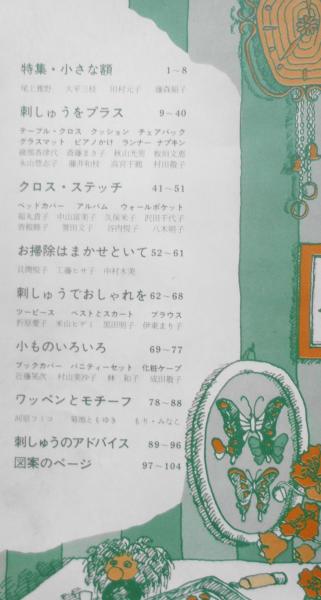 特集・小さな額 1~8
尾上雅野 大平三枝 田村元子 藤森絹子
刺しゅうをプラス 9~40
テーブル・クロス クッション チェアバック
グラスマット ピアノかけ ランナー ナプキン
斎藤まき子 秋山光男
永山登志子 藤井和枝 高宮千鶴 村田敬子
クロス・ステッチ 41~51
ベッドカバー アルバム ウォールポケット
福丸貴子 中山富美子 久保米子 沢田千代子
誉田文子 谷内悦子 八木明子
お掃除はまかせといて 52~61
長澗悦子 工藤ヒサ子 中村木美
刺しゅうでおしゃれを 62~68
ツーピース ベストとスカート ブラウス
折原愛子 米山ヒデミ 黒田明子 伊東まり子
小ものいろいろ 69~77
ブックカバー バニティーセット 化粧ケープ
近藤英次 村山美沙子 林和子 成田敬子
ワッペンとモチーフ 78~88
河原フミコ 菊池ともゆき もり・みなこ
刺しゅうのアドバイス 89~96
図案のページ 97~104